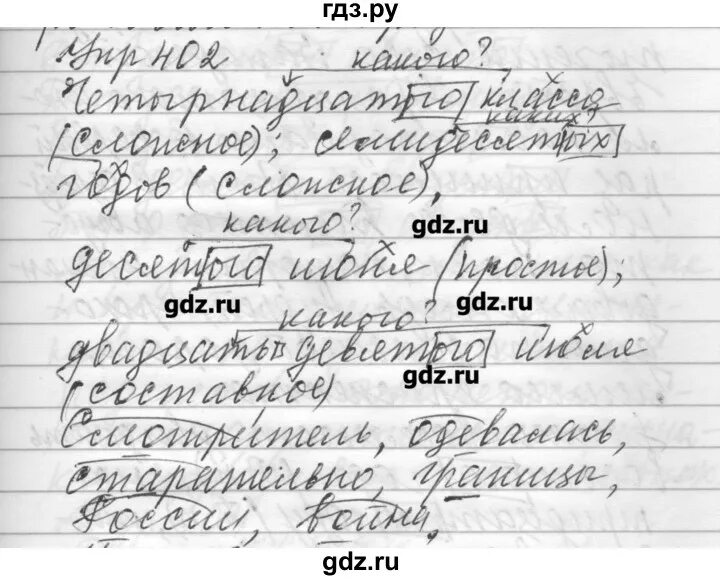 гдз.ру
Упр 402 какого?
Четырнадцатого класса
каких?
(сложное); семидесятых
годов (сложное),
какого?
gdz.ru
десятого июля (простое);
gdz.ru
gdz.ru
какого?
двадцать девятого июля
gdz.ru
(составное)
Смотритель, одевалась,
старательно, границы,
России, война,
gdz.ru